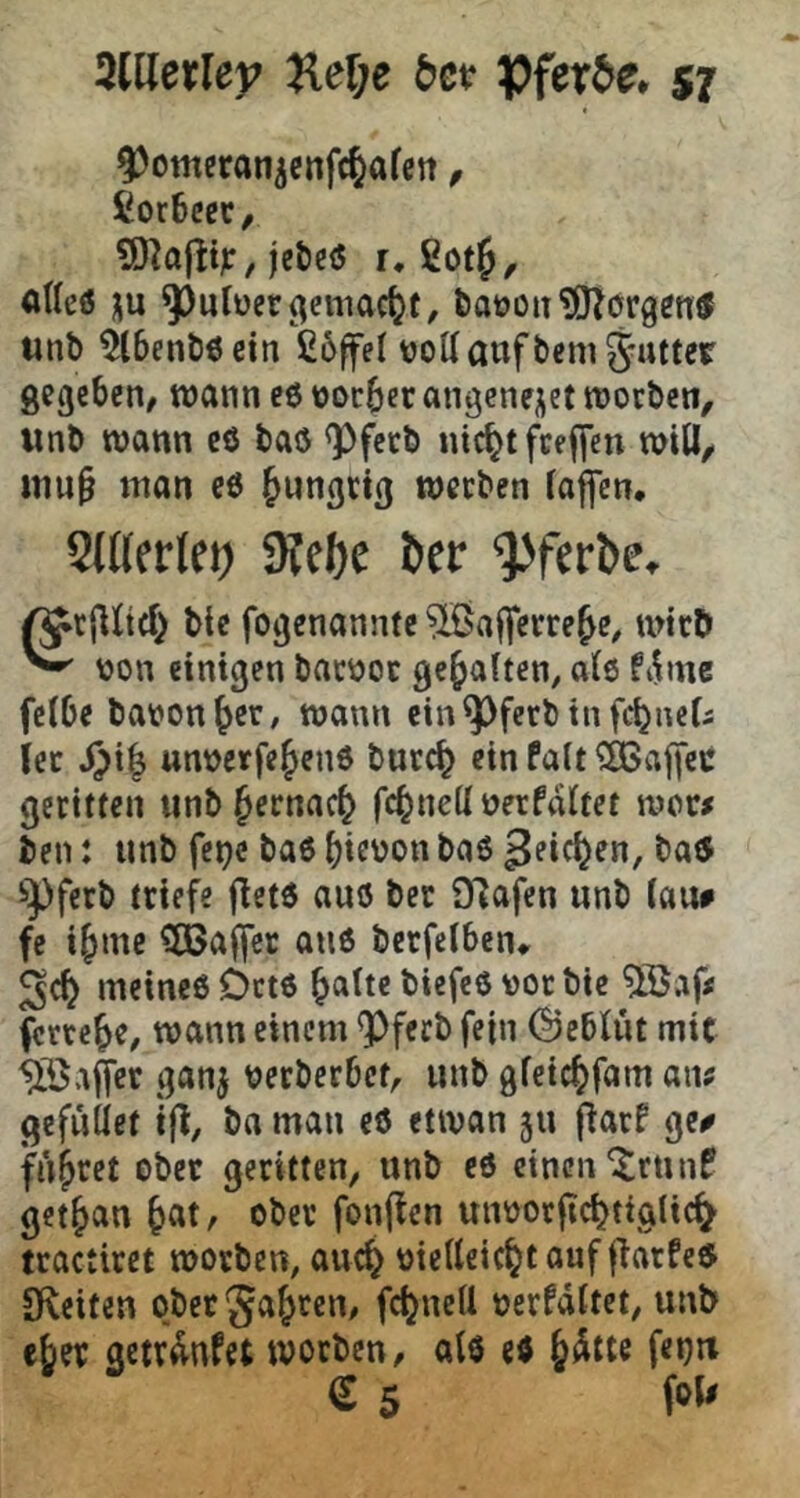 Allerley Rehe der Pferde. 57
Pomeranzenschalen,
Lorbeer,
Mastix, jedes 1. Loth,
alles zu Pulver gemacht, davon Morgens
und Abends ein Löffel voll auf dem Futter
gegeben, wann es vorher angenezet worden,
und wann es das Pferd nicht fressen will,
muß man es hungrig werden lassen.
Allerley Rehe der Pferde.
Erstlich die sogenannte Wasserrehe, wird
von einigen darvor gehalten, als käme
selbe davon her, wann ein Pferd in schnel-
ler Hitz unversehens durch ein kalt Wasser
geritten und hernach schnell verkältet wor-
den: und seye das hievon das Zeichen, das
Pferd triefe stets aus der Nasen und lau-
fe ihme Wasser aus derselben.
Ich meines Orts halte dieses vor die Was-
serrehe, wann einem Pferd sein Geblüt mit
Wasser ganz verderbet, und gleichsam an-
gefüllet ist, da man es etwan zu stark ge-
führet oder geritten, und es einen Trunk
gethan hat, oder sonsten unvorsichtiglich
tractiret worden, auch vielleicht auf starkes
Reiten oder Fahren, schnell verkältet, und
eher getränket worden, als es hätte seyn
E 5 sol-